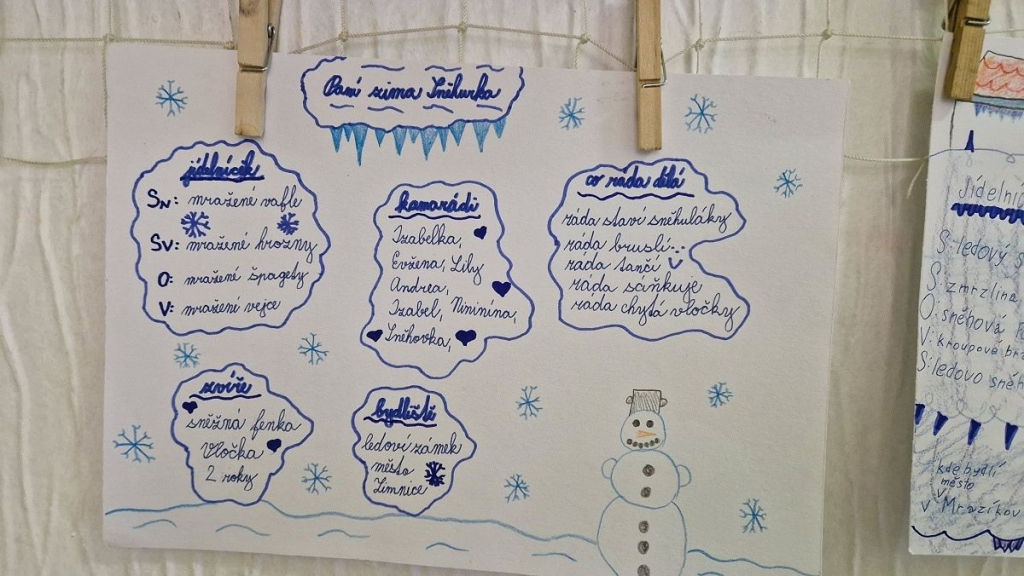 Paní zima Sněhurka
jídelníček
SN: mražené vafle
SV: mražené hrozny
O: mražené špagety
V: mražení vejce
kamarádi
Izabelka,
Evžena, Lily
Andrea,
Izabel, Nininína,
Sněhovka,
co ráda dělá
ráda staví sněhuláky
ráda bruslí
ráda tančí
ráda sáňkuje
ráda chytá vločky
zvíře
sněžná fenka
Vločka
2 roky
bydliště
ledoví zámek
město
Zimnice
Jídelní
S: ledový s
S: zmrzlina,
O: sněhová
V: kroupové
S: ledovo sněh
kde bydlí
město
v Mrazíkov